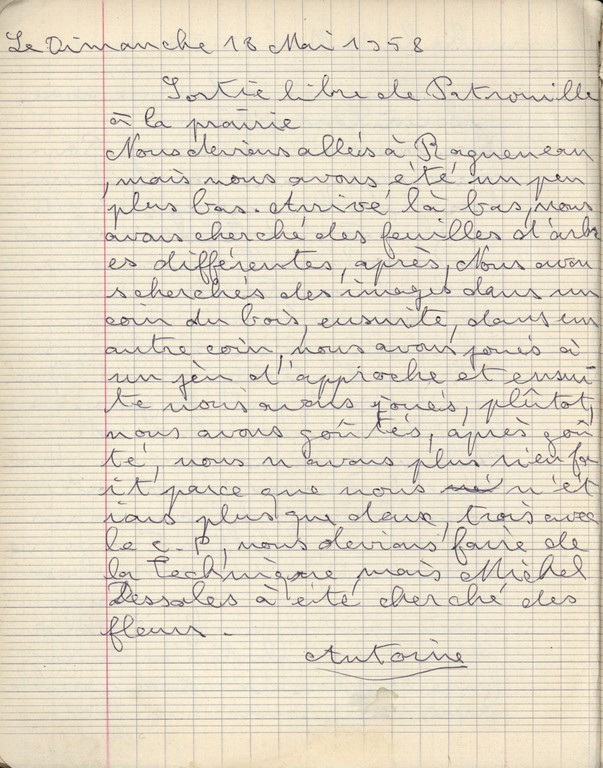 Le Dimanche 18 Mai 1958
Sortie libre de Patrouille
à la prairie
Nous devions allés à Ragueneau
, mais nous avons été un peu
plus bas. Arrivé là bas, nous
avons cherché des feuilles d'arbr
es différentes, après, Nous avon
s cherchés des images dans un
coin du bois, ensuite, dans un
autre coin, nous avons joués à
un jeu d'approche et ensui
te nous avons joués, plûtot,
nous avons goûtés, après goû
té, nous n'avons plus rien fa
it parce que nous n'ét
ions plus que deux, trois avec
le C.P, nous devions faire de
la Technique mais Michel
Dessoles à été cherché des
fleurs.
Antoine